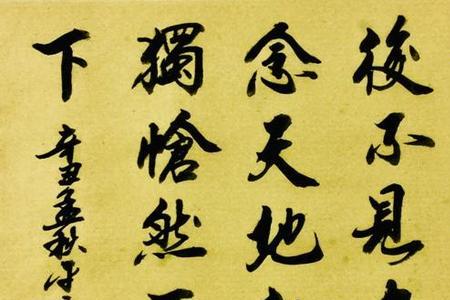 後不見
念天地
獨愴然而
下
辛丑孟秋